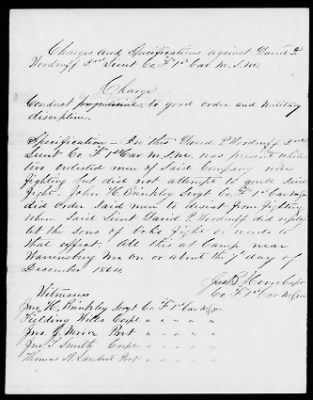 Charges and Specifications against David P.
Woodruff 2nd Lieut Co. F 1st Cav M.S.M.
Charge
Conduct prejudicial to good order and military
discipline.
Specification – In this David P. Woodruff 2nd
Lieut Co F 1st Cav M.S.M. was present while
two enlisted men of said Company were
fighting but did not attempt to quell said
fight. John H. Brinkley Sergt Co. F 1st Cav M.S.M.
did order said men to desist from fighting
when said Lieut David P. Woodruff did reply
let the sons of
that effect. All this at Camp near
Warrensburg Mo on or about the 7th day of
December 1862.
Co F 1st Cav M.S.M
Witnesses
Jno H. Brinkley Sergt Co F 1st Cav M.S.M
Fielding Wills Corpl " " " "
Jno. G. Privt " " " "
Jno. T. Smith Corpl " " " "
Thomas Privt " " " "